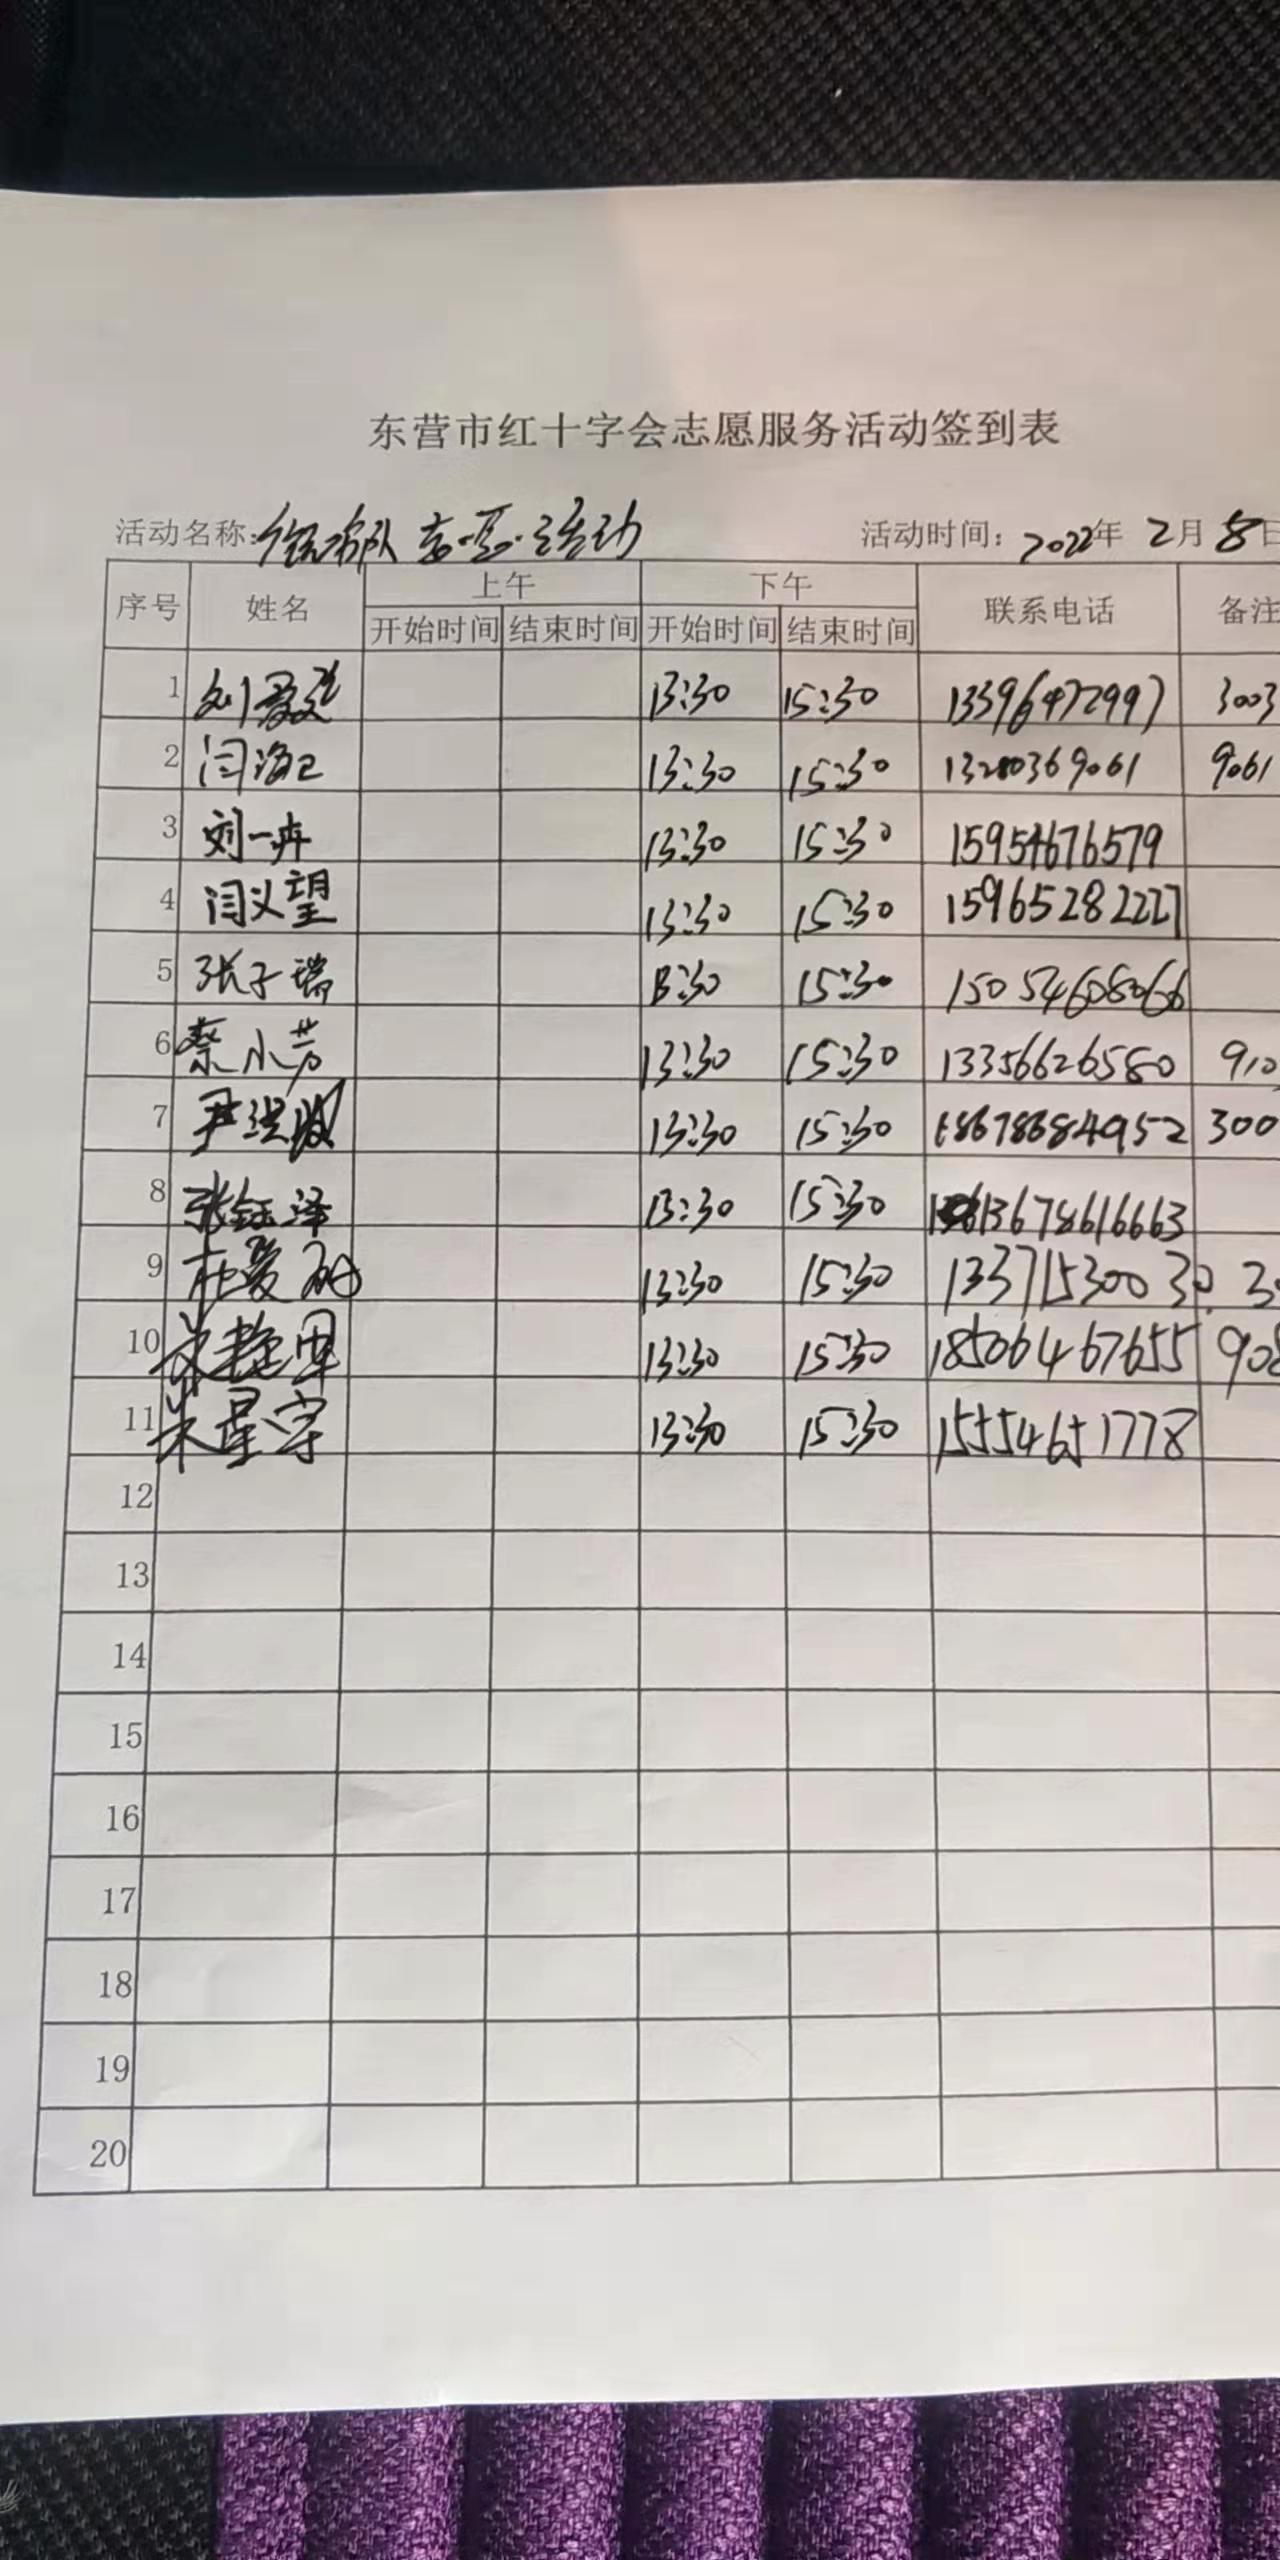 东营市红十字会志愿服务活动签到表
活动名称: 活动 活动时间: 2022年 2月 8日
序号 姓名 上午 下午 联系电话 备注
开始时间 结束时间 开始时间 结束时间
1 刘 13:30 15:30 13396472997 3003
2 闫海卫 13:30 15:30 13280369061 9061
3 刘一卉 13:30 15:30 15954676579
4 闫义望 13:30 15:30 15965282227
5 张子瑞 13:30 15:30 15054608066
6 蔡小芳 13:30 15:30 13356626580 910
7 尹洪 13:30 15:30 18678684952 300
8 张钰泽 13:30 15:30 13678616663
9 杜爱 13:30 15:30 13371530030
10 13:30 15:30 18506467655 908
11 朱星宇 13:30 15:30 15554651778
12
13
14
15
16
17
18
19
20